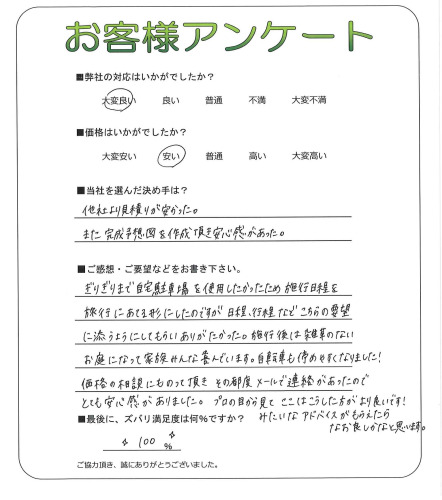 お客様アンケート
■弊社の対応はいかがでしたか?
大変良い 良い 普通 不満 大変不満
■価格はいかがでしたか?
大変安い 安い 普通 高い 大変高い
■当社を選んだ決め手は?
他社より見積りが安かった。
また完成予想図を作成頂き安心感があった。
■ご感想・ご要望などをお書き下さい。
ぎりぎりまで自宅駐車場を使用したかったため施行日程を
旅行にあてる形にしたのですが日程、行程などこちらの要望
に添うようにしてもらいありがたかった。施行後は雑草のない
お庭になって家族みんな喜んでいます。自転車も停めやすくなりました!
価格の相談にものって頂きその都度メールで連絡があったので
とても安心感がありました。プロの目から見てここはこうした方がより良いです!
みたいなアドバイスがもらえたら
なお良しかなと思います。
■最後に、ズバリ満足度は何%ですか?
100 %
ご協力頂き、誠にありがとうございました。